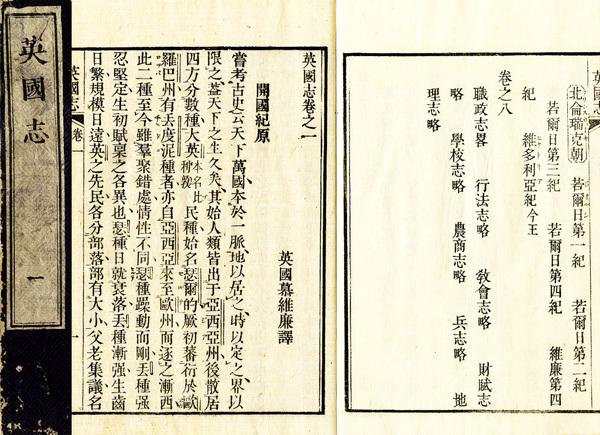 英國志
北倫瑞克朝 若爾日第一紀 若爾日第二紀
若爾日第三紀 若爾日第四紀 維廉第四
紀 維多利亞紀今王
卷之八
職政志畧 行法志略 教會志略 財賦志
略 學校志略 農商志略 兵志略 地
理志略
英國志卷之一
英國慕維廉譯
開國紀原
嘗考古史云天下萬國本於一脈地以居之時以定之界以
限之蓋天下之生久矣其始人類皆出于亞西亞州後散居
四方分數種大英本名此民種始名瑟爾的厥初蕃衍於歐
羅巴州有丟度泥種者亦自亞西亞來至歐州而逐之漸西
此二種至今雖羣聚錯處情性不同瑟種躁動而剛丟種强
忍堅定生初賦稟之各異也瑟種日就衰落丟種漸强生齒
日繁規模日遠英之先民各分部落部有大小父老集議名
英國志 卷一 一
英國志 一